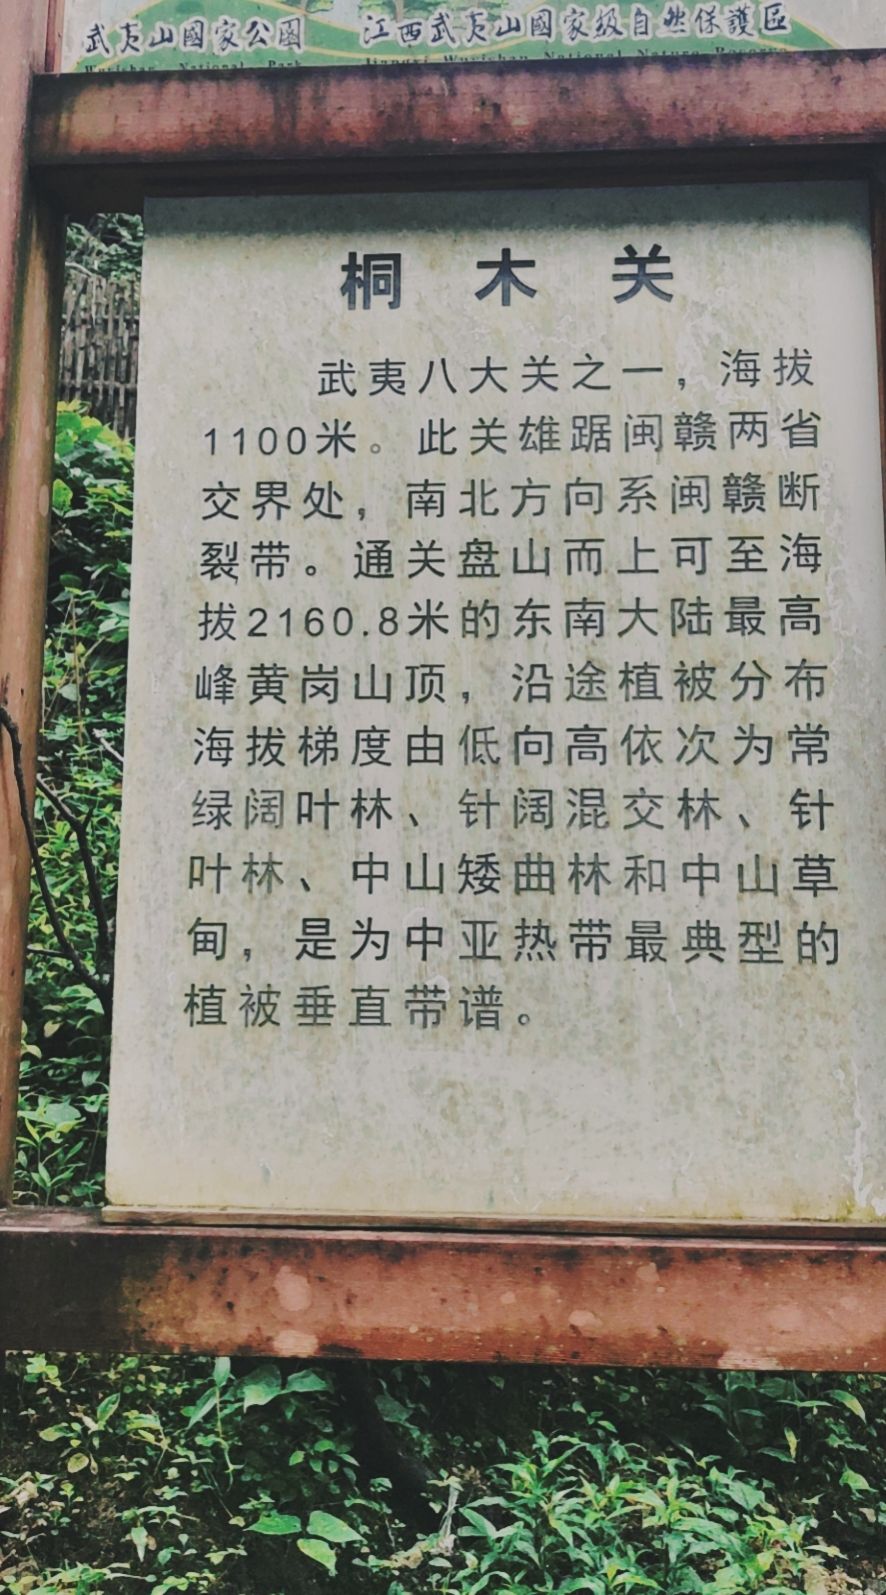 武夷山國家公園 江西武夷山國家級自然保護區
Wuyishan National Park Jiangxi Wuyishan National Nature Reserve
桐木关
武夷八大关之一，海拔
1100米。此关雄踞闽赣两省
交界处，南北方向系闽赣断
裂带。通关盘山而上可至海
拔2160.8米的东南大陆最高
峰黄岗山顶，沿途植被分布
海拔梯度由低向高依次为常
绿阔叶林、针阔混交林、针
叶林、中山矮曲林和中山草
甸，是为中亚热带最典型的
植被垂直带谱。